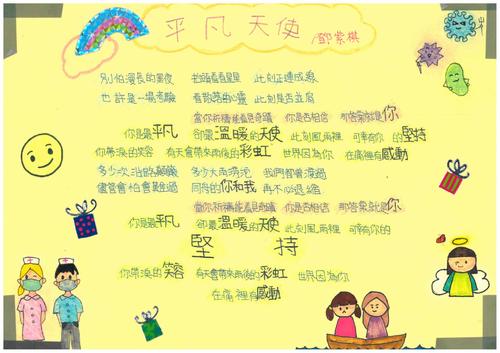 平凡天使 /鄧紫棋
別怕漫長的黑夜 抬頭看看星星 此刻正連成線
也許是一場考驗 看散落的心靈 此刻是否並肩
當你祈禱能看見奇蹟 你是否相信 那答案就是你
你是最平凡 卻最溫暖的天使 此刻風雨裡 可幸有你的堅持
你帶淚的笑容 有天會帶來雨後的彩虹 世界因為你 在痛裡有感動
多少次沿路顛簸 多少大雨滂沱 我們都曾淌過
儘管會怕會難過 同舟的你和我 再不必退縮
當你祈禱能看見奇蹟 你是否相信 那答案就是你
你是最平凡 卻最溫暖的天使 此刻風雨裡 可幸有你的
堅持
你帶淚的笑容 有天會帶來雨後的彩虹 世界因為你
在痛裡有感動